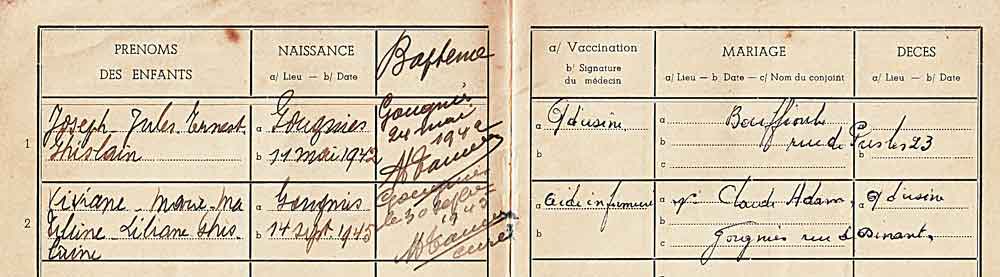 PRENOMS
DES ENFANTS
NAISSANCE
a/ Lieu — b/ Date
Baptême
a/ Vaccination
b/ Signature
du médecin
MARIAGE
a/ Lieu — b/ Date — c/ Nom du conjoint
DECES
a/ Lieu — b/ Date
1
Joseph Jules Ernest
Ghislain
a Gougnies
b 11 mai 1942
Gougnies
24 mai
1942
a
b
a Bouffioulx
b rue de Presles 23
c
a
b
2
Viviane Marie Ma
Liliane Ghis
laine
a Gougnies
b 14 sept. 1945
Gougnies
le 30
curé
a aide infirmière
b
Claude Adam
b
c Gougnies rue d Dinant.
a
b